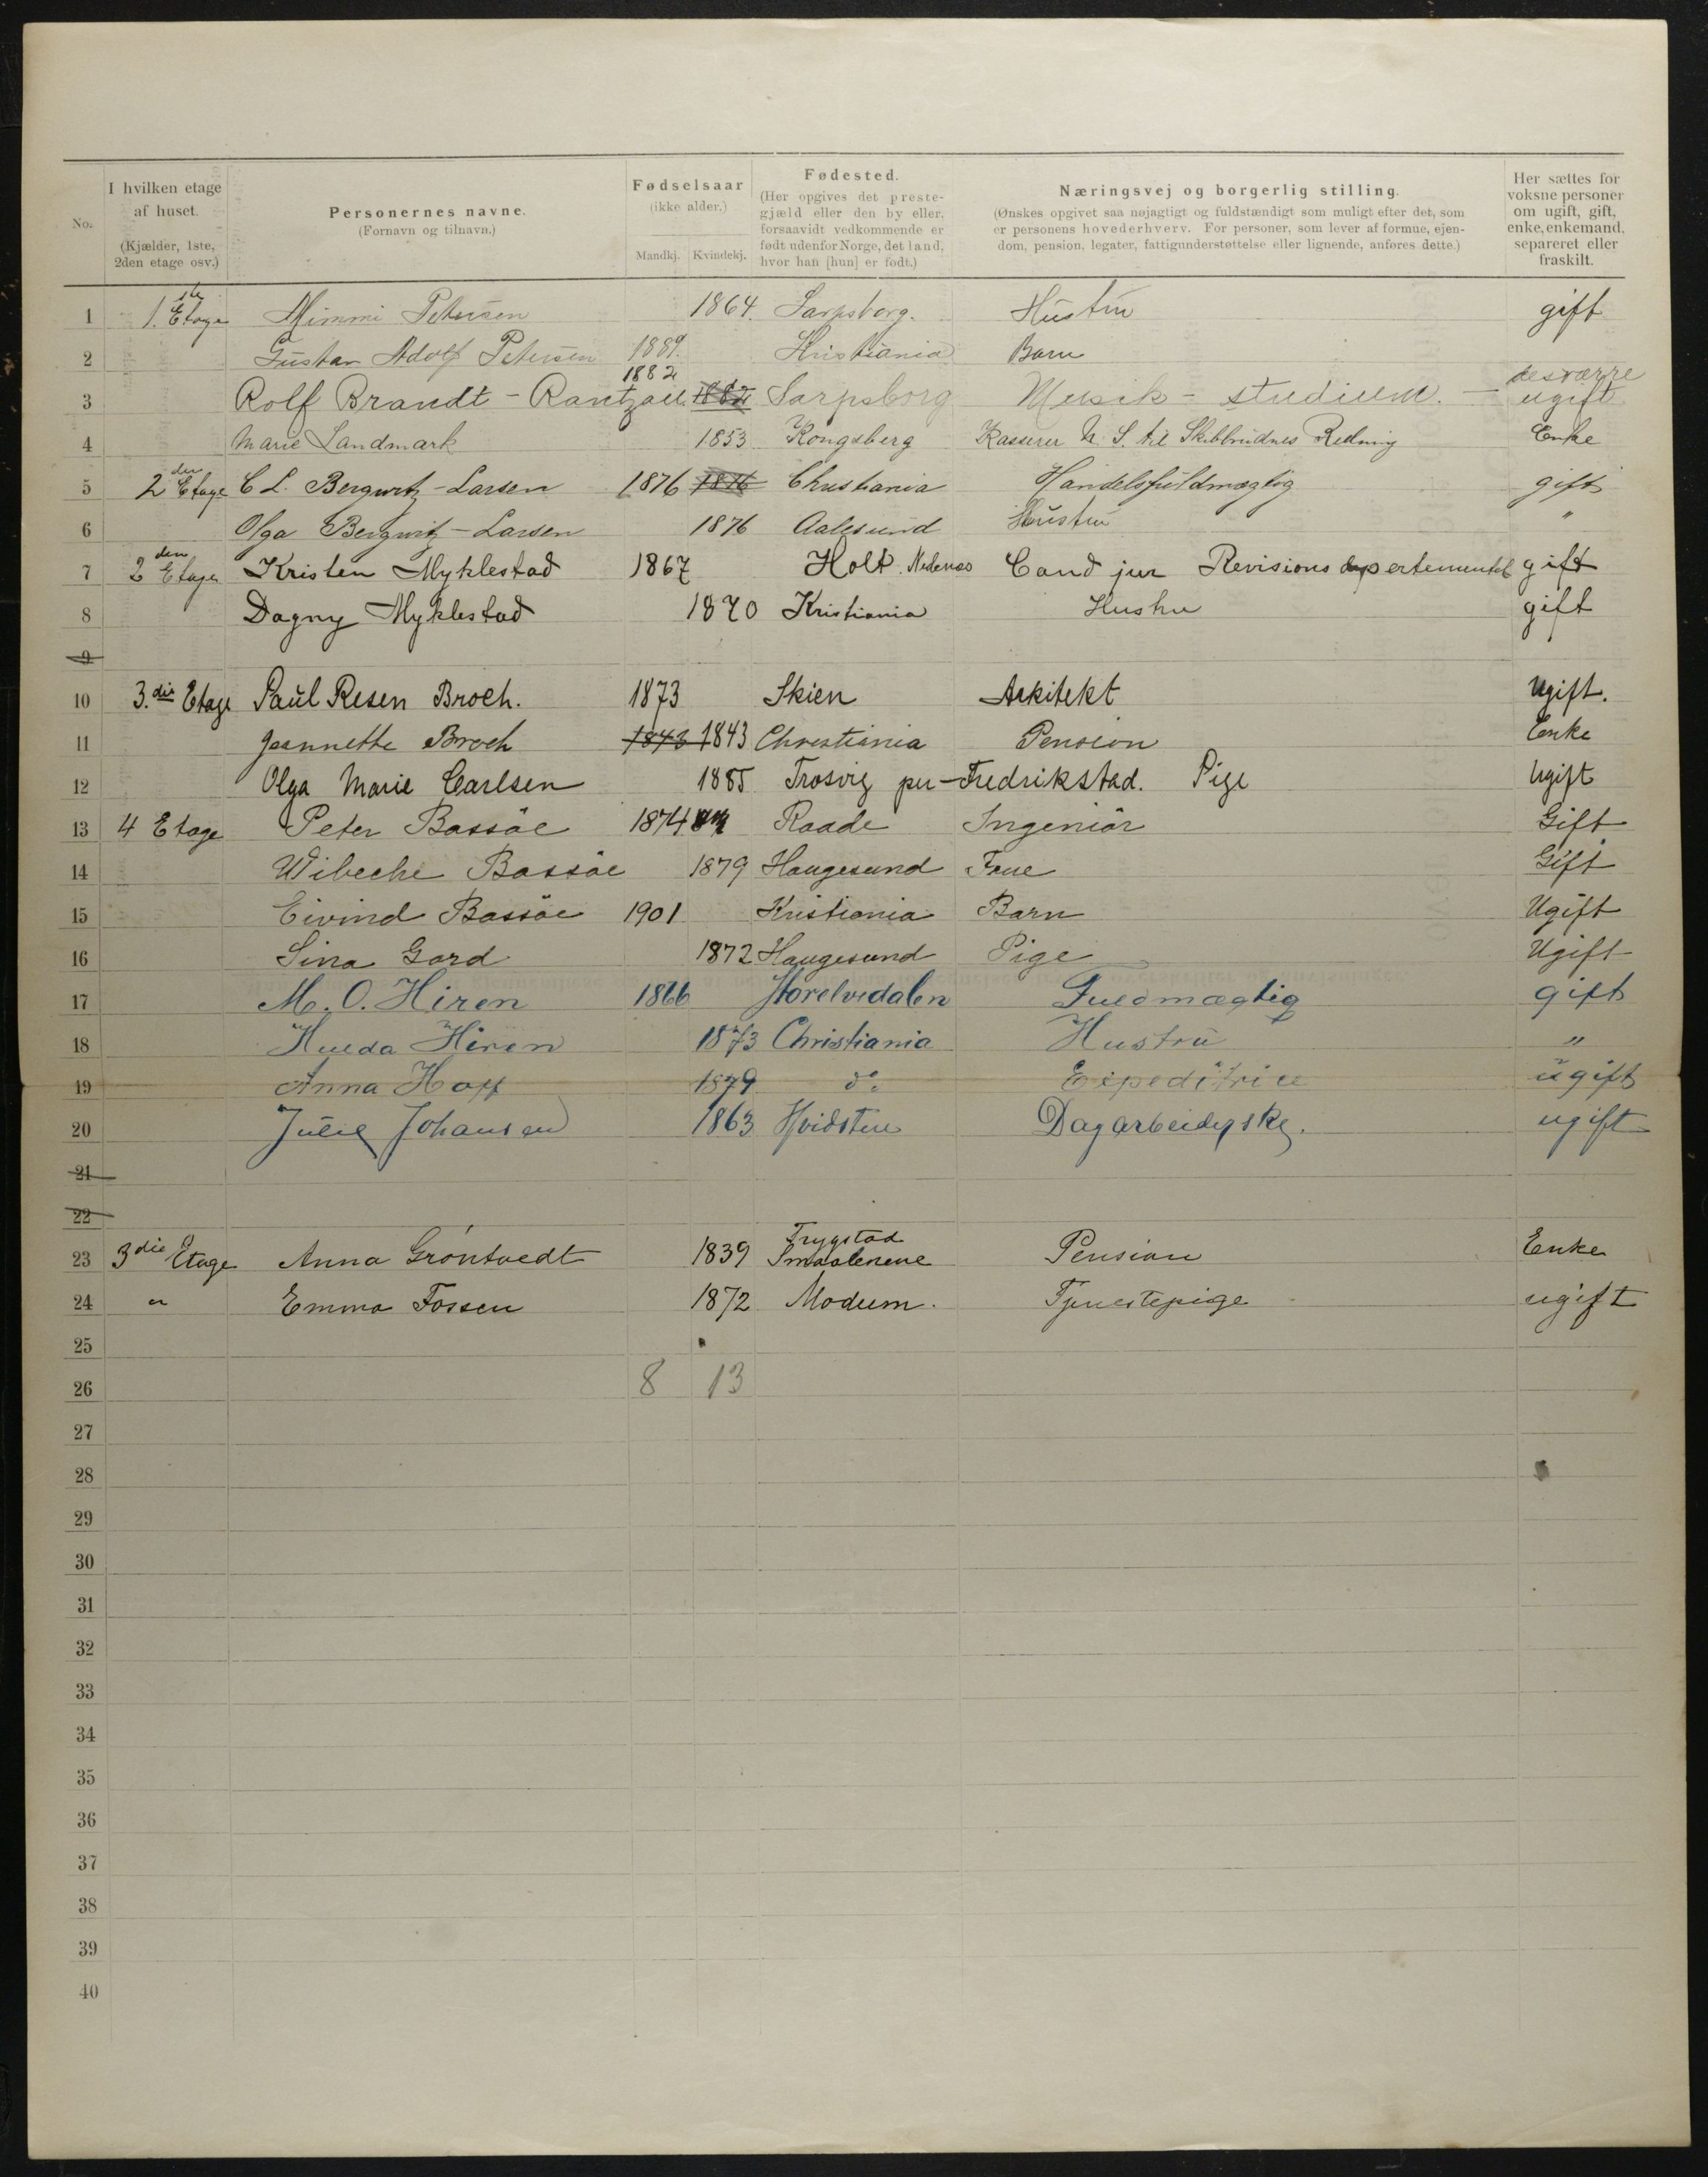 No. I hvilken etage af huset. (Kjælder, 1ste, 2den etage osv.) Personernes navne. (Fornavn og tilnavn.) Fødselsaar (ikke alder.) Mandkj. Kvindekj. Fødested. (Her opgives det prestegjæld eller den by eller, forsaavidt vedkommende er født udenfor Norge, det land, hvor han [hun] er født.) Næringsvej og borgerlig stilling. (Ønskes opgivet saa nøjagtigt og fuldstændigt som muligt efter det, som er personens hovederhverv. For personer, som lever af formue, ejendom, pension, legater, fattigunderstøttelse eller lignende, anføres dette.) Her sættes for voksne personer om ugift, gift, enke, enkemand, separeret eller fraskilt.
1 1.ste Etage Mimmi Petersen 1864. Sarpsborg. Hustru gift
2 Gustav Adolf Petersen 1889. Kristiania Barn
3 Rolf Brandt-Rantzau. 1882 1882 Sarpsborg Musik-studium. — desværre ugift
4 Marie Landmark 1853 Kongsberg Kasserer N. S. til Skibbrudnes Redning Enke
5 2den Etage C L. Bergwitz-Larsen 1876 1876 Christiania Handelsfuldmægtig gift
6 Olga Bergwitz-Larsen 1876 Aalesund Hustru "
7 2den Etage Kristen Myklestad 1867 Holt. Nedenæs Cand jur Revisionsdepartementet gift
8 Dagny Myklestad 1870 Kristiania Hustru gift
9
10 3.die Etage Paul Resen Broch. 1873 Skien Arkitekt Ugift.
11 Jeannette Broch 1843 1843 Christiania Pension Enke
12 Olga Marie Carlsen 1885 Trosvig pr-Fredrikstad. Pige Ugift
13 4 Etage Peter Bassöe 1874 Raade Ingeniör Gift
14 Wibeche Bassöe 1879 Haugesund Frue Gift
15 Eivind Bassöe 1901 Kristiania Barn Ugift
16 Sina Gard 1872 Haugesund Pige Ugift
17 M. O. Hiren 1866 Storelvedalen Fuldmægtig gift
18 Hulda Hiren 1873 Christiania Hustru "
19 Anna Hoff 1879 do. Expeditrice ugift
20 Julie Johansen 1863 Hvidsten Dagarbeiderske. ugift
21
22
23 3die Etage Anna Gróntvedt 1839 Trygstad Smaalenene Pension Enke
24 " Emma Fossen 1872 Modum. Tjenestepige ugift
25
26 8 13
27
28
29
30
31
32
33
34
35
36
37
38
39
40